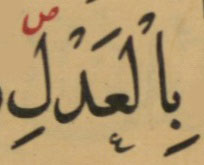 بِالْعَدْلِ ص